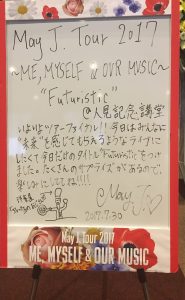 May J. Tour 2017
~ME, MYSELF & OUR MUSIC~
"Futuristic"
@人見記念講堂
いよいよツアーファイナル!! 今日はみんなに
"未来"を感じてもらえるようなライブに
したくて今日だけのタイトル"Futuristic"をつけ
ました。たくさんのサプライズがあるので、
楽しみにしててね!!!
May J.
2017.7.30
May J. Tour 2017
ME, MYSELF & OUR MUSIC